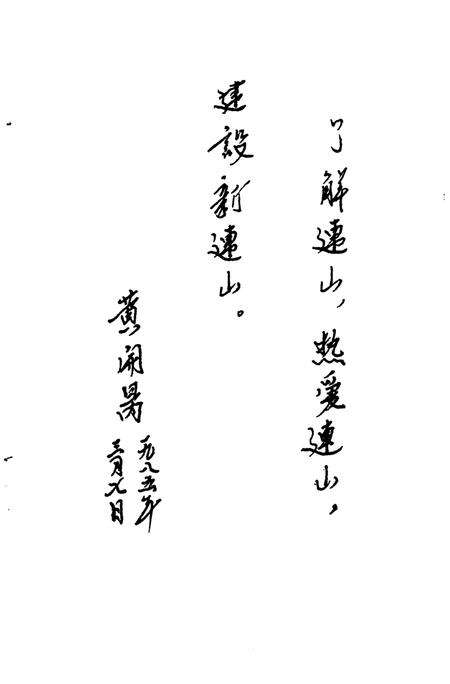 了解連山，热爱連山，
建設新連山。
黄開
一九八五年
三月九日